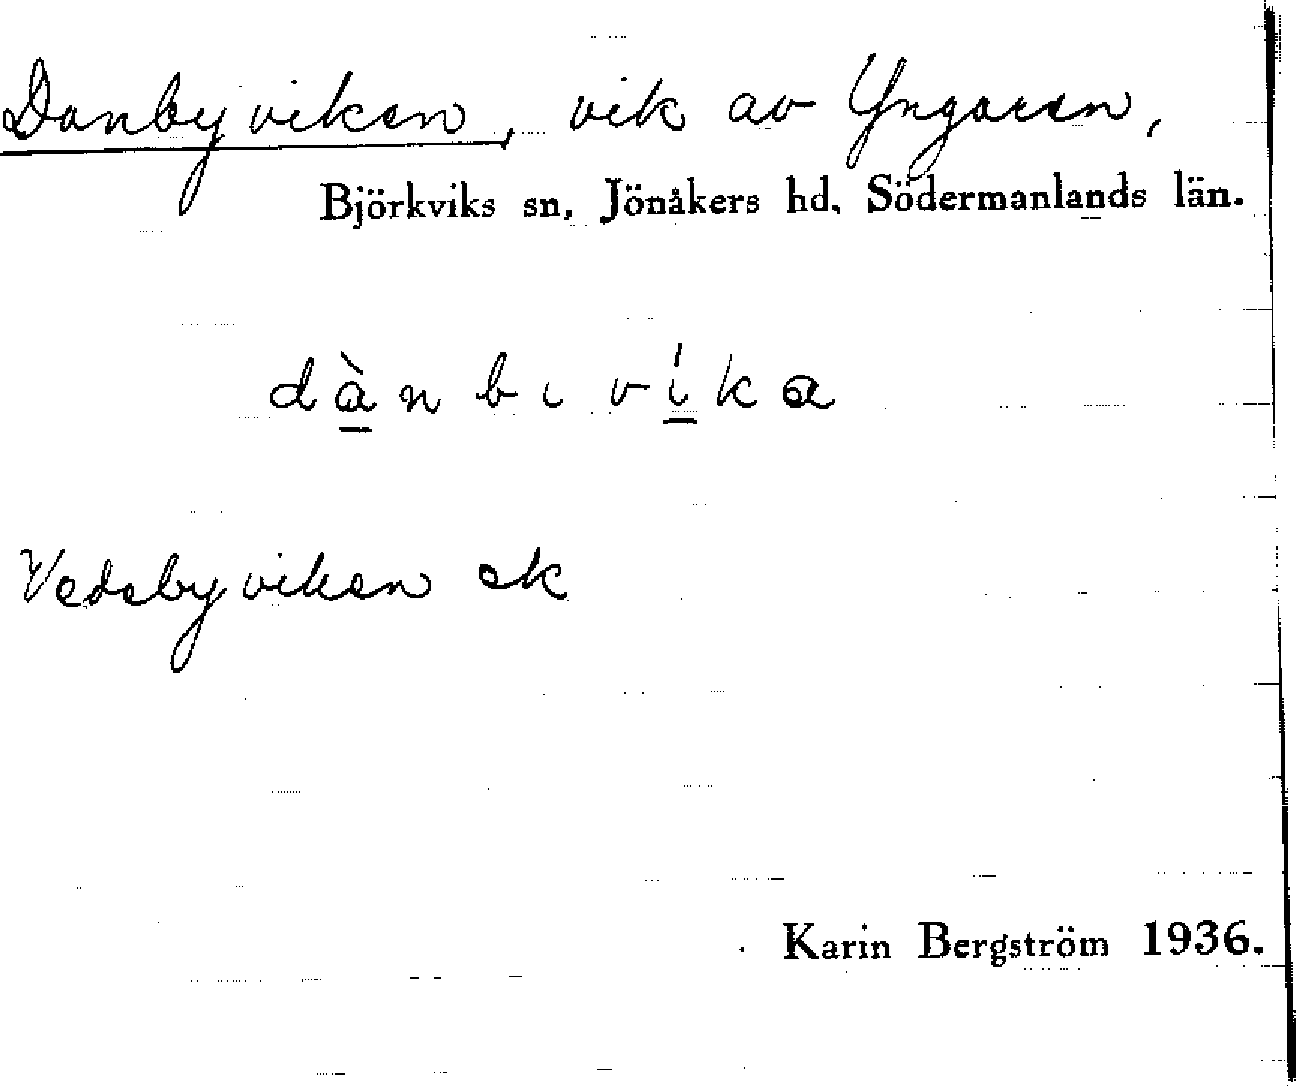 Danbyviken, vik av Yngaren,
Björkviks sn, Jönåkers hd, Södermanlands län.
dànbıvíka
Vedebyviken ek
Karin Bergström 1936.